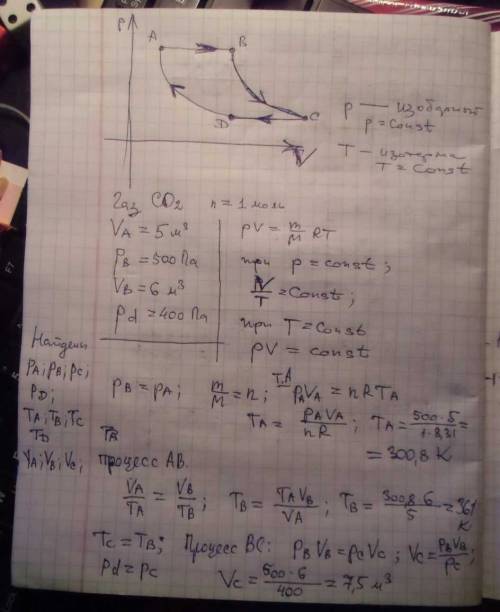 P
A
B
D
C
V
P — изобарный
p = Const
T — изотерма
T = Const
Газ CO₂ n = 1 моль
V_A = 5 м³
P_B = 500 Па
V_B = 6 м³
P_d = 400 Па
pV = m/M RT
при p = const;
V/T = Const;
при T = Const
pV = const
Найдены
P_A; P_B; P_C;
P_D;
T_A; T_B; T_C
T_D
V_A; V_B; V_C,
P_B = P_A; m/M = n; т.A P_A V_A = n R T_A
T_A = P_A V_A / nR; T_A = 500·5 / 1·8,31 =
= 300,8 K
процесс AB.
V_A / T_A = V_B / T_B; T_B = T_A V_B / V_A; T_B = 300,8·6 / 5 = 361 K
T_C = T_B; Процесс BC: P_B V_B = P_C V_C; V_C = P_B V_B / P_C;
P_d = P_C V_C = 500·6 / 400 = 7,5 м³